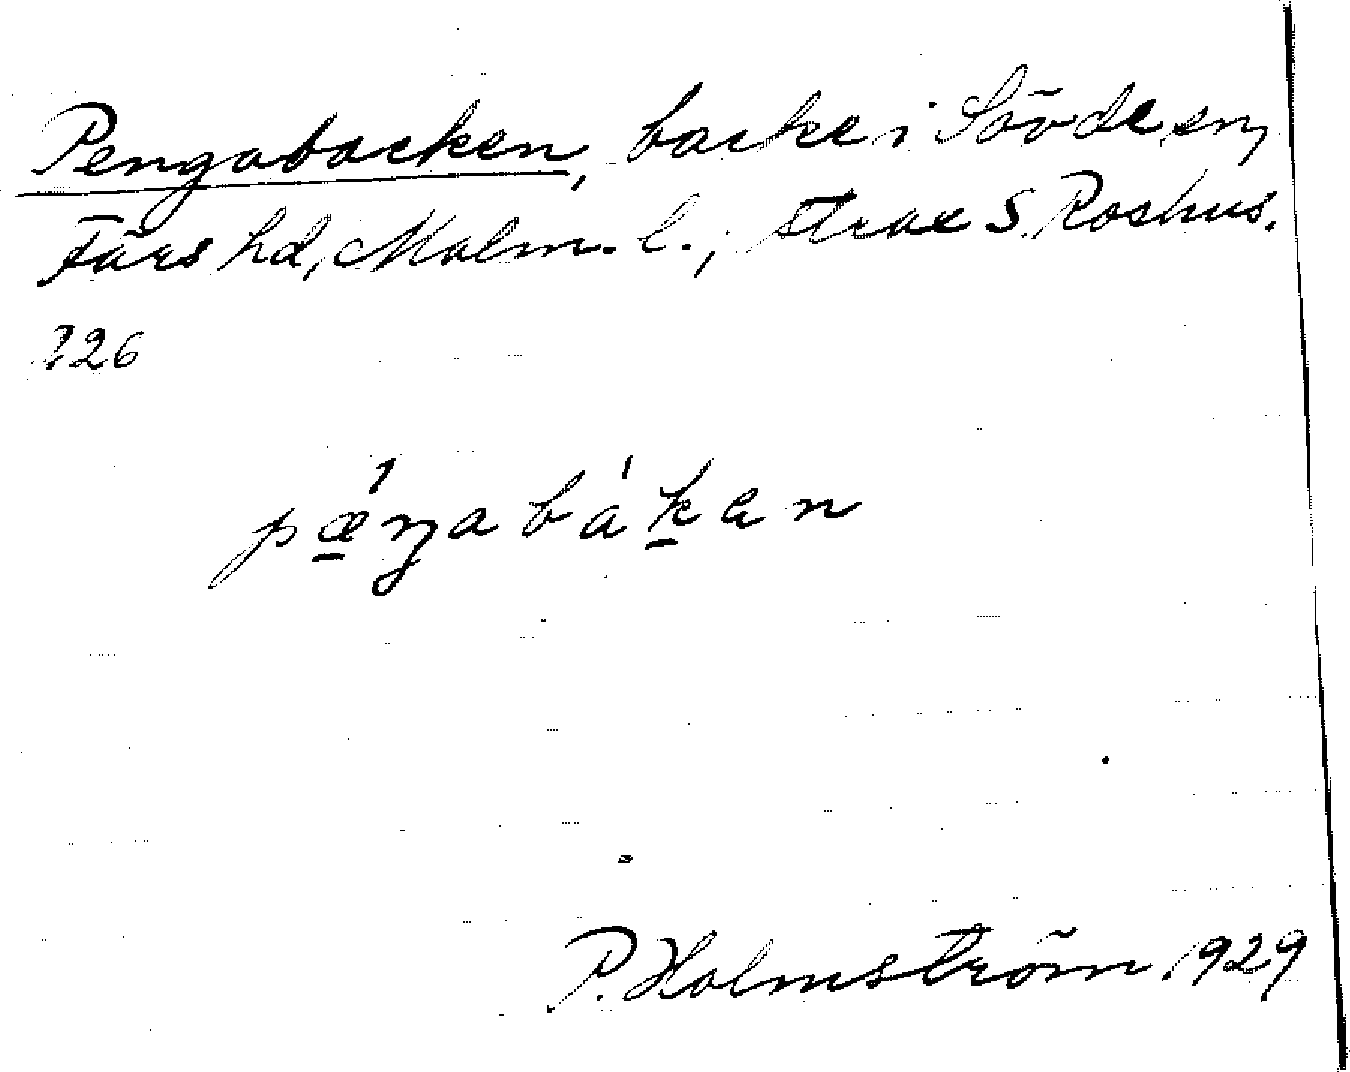 Pengabacken, backe i Sövde sn,
Färs hd, Malm. l.; strax S. Roshus.
126
pǽ̠ŋabák̠an
P. Holmström 1929